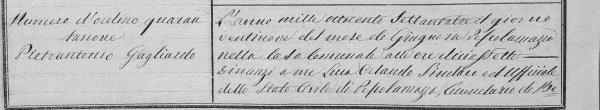 Numero d'ordine quaran
tanove
Pietrantonio Gagliardo
L'anno mille ottocento settantatre il giorno
ventinove del mese di Giugno in
nella Casa Comunale alle ore diciassette
Dinanzi a me Luca Orlando Sindaco ed Uffiziale
dello Stato Civile di Circondario di